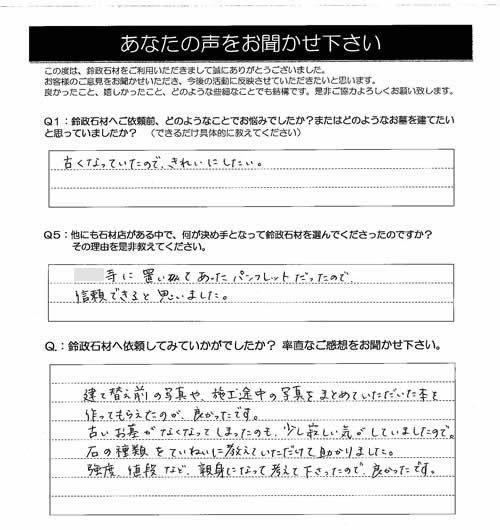 あなたの声をお聞かせ下さい
この度は、鈴政石材をご利用いただきまして誠にありがとうございました。
お客様のご意見をお聞かせいただき、今後の活動に反映させていただきたいと思います。
良かったこと、嬉しかったこと、どのような些細なことでも結構です。是非ご協力よろしくお願い致します。
Q1：鈴政石材へご依頼前、どのようなことでお悩みでしたか？またはどのようなお墓を建てたい
と思っていましたか？（できるだけ具体的に教えてください）
古くなっていたので、きれいにしたい。
Q5：他にも石材店がある中で、何が決め手となって鈴政石材を選んでくださったのですか？
その理由を是非教えてください。
手に置いてあったパンフレットだったので、
信頼できると思いました。
Q.：鈴政石材へ依頼してみていかがでしたか？ 率直なご感想をお聞かせ下さい。
建て替え前の写真や、施工途中の写真をまとめていただいた本を
作ってもらえたのが、良かったです。
古いお墓がなくなってしまったのも、少し寂しい気がしていましたので。
石の種類をていねいに教えていただけて助かりました。
強度、値段など、親身になって考えて下さったので、良かったです。